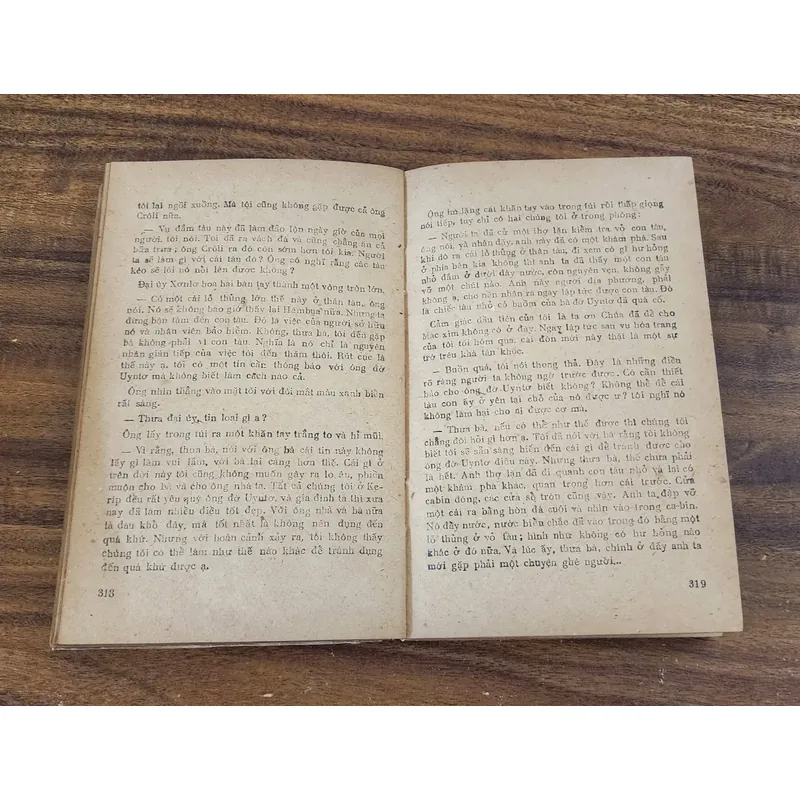 tôi lại ngồi xuống. Mà tôi cũng không gặp được cả ông
Crôli nữa.
— Vụ đắm tàu này đã làm đảo lộn ngày giờ của mọi
người, tôi nói. Tôi đã ra vách đá và cũng chẳng ăn cả
bữa trưa; ông Crôli ra đó sớm hơn tôi kia. Người
ta sẽ làm gì với cái tàu đó? Ông có nghĩ rằng các tàu
kéo sẽ lôi nó nổi lên được không?
Đại úy Xơnlơ hoa hai bàn tay thành một vòng tròn lớn.
— Có một cái lỗ thủng lớn thế này ở thân tàu, ông
nói. Nó sẽ không bao giờ thấy lại Hămbua nữa. Nhưng ta
đừng bận tâm đến con tàu. Đó là việc của người sở hữu
nó và nhân viên bảo hiểm. Không, thưa bà, tôi đến gặp
bà không phải vì con tàu. Nghĩa là nó chỉ là nguyên
nhân gián tiếp của việc tôi đến thăm thôi. Rút cục là
thế này ạ, tôi có một tin cần thông báo với ông đờ
Uyntơ mà không biết làm cách nào cả.
Ông nhìn thẳng vào mặt tôi với đôi mắt màu xanh biển
rất sáng.
— Thưa đại úy, tin loại gì ạ?
Ông lấy trong túi ra một khăn tay trắng to và hỉ mũi.
— Vì rằng, thưa bà, nói với ông bà cái tin này không
lấy gì làm vui lắm, với bà lại càng hơn thế. Cái gì ở
trên đời này tôi cũng không muốn gây ra lo âu, phiền
muộn cho bà và cho ông nhà ta. Tất cả chúng tôi ở Ke-
rip đều rất yêu quý ông đờ Uyntơ, và gia đình ta thì xưa
nay đã làm nhiều điều tốt đẹp. Với ông nhà và bà nữa
là đau khổ đấy, mà tốt nhất là không nên đụng đến
quá khứ. Nhưng với hoàn cảnh xảy ra, tôi không thấy
chúng tôi có thể làm như thế nào khác để tránh đụng
đến quá khứ được ạ.
318
Ông im lặng cất khăn tay vào trong túi rồi thấp giọng
nói tiếp, tuy chỉ có hai chúng tôi ở trong phòng:
— Người ta đã cử một thợ lặn kiểm tra vỏ con tàu,
ông nói, và nhân đây, anh này đã có một khám phá. Sau
khi dò ra cái lỗ thủng ở thân tàu, đi xem có gì hư hỏng
ở phía bên kia không thì anh ta đã thấy một con tàu
nhỏ đắm ở dưới đáy nước, còn nguyên vẹn, không gãy
vỡ một chút nào. Anh này người địa phương, phải
không ạ, cho nên nhận ra ngay lập tức được con tàu. Đó
là chiếc tàu nhỏ có buồm của bà đờ Uyntơ đã quá cố.
Cảm giác đầu tiên của tôi là tạ ơn Chúa đã để cho
Mắc xim không có ở đây. Ngay lập tức sau vụ hóa trang
của tôi tối hôm qua, cái đòn mới này thật là một sự
trớ trêu khá tàn khốc.
— Buồn quá, tôi nói thong thả. Đây là những điều
rõ ràng người ta không ngờ trước được. Có cần thiết
báo cho ông đờ Uyntơ biết không? Không thể để cái
tàu con ấy ở yên tại chỗ của nó được ư? tôi nghĩ nó
không làm hại cho ai được cơ mà.
— Thưa bà, nếu có thể như thế được thì chúng tôi
chẳng đòi hỏi gì hơn ạ. Tôi đã nói với bà rằng tôi không
biết tôi sẽ sẵn sàng hiến cái gì để tránh được cho
ông đờ Uyntơ điều này. Nhưng thưa bà, thế chưa phải
là hết. Anh thợ lặn đã đi quanh con tàu nhỏ và lại có
một khám phá khác, quan trọng hơn cái trước. Cửa
cabin đóng, các cửa sổ tròn cũng vậy. Anh ta đập vỡ
một cái ra bằng hòn đá cuội và nhìn vào trong ca-bin.
Nó đầy nước, nước biển chắc đã vào trong đó bằng một
lỗ thủng ở vỏ tàu; hình như không có hư hỏng nào
khác ở đó nữa. Và lúc ấy, thưa bà, chính ở đấy anh ta
mới gặp phải một chuyện ghê người...
319